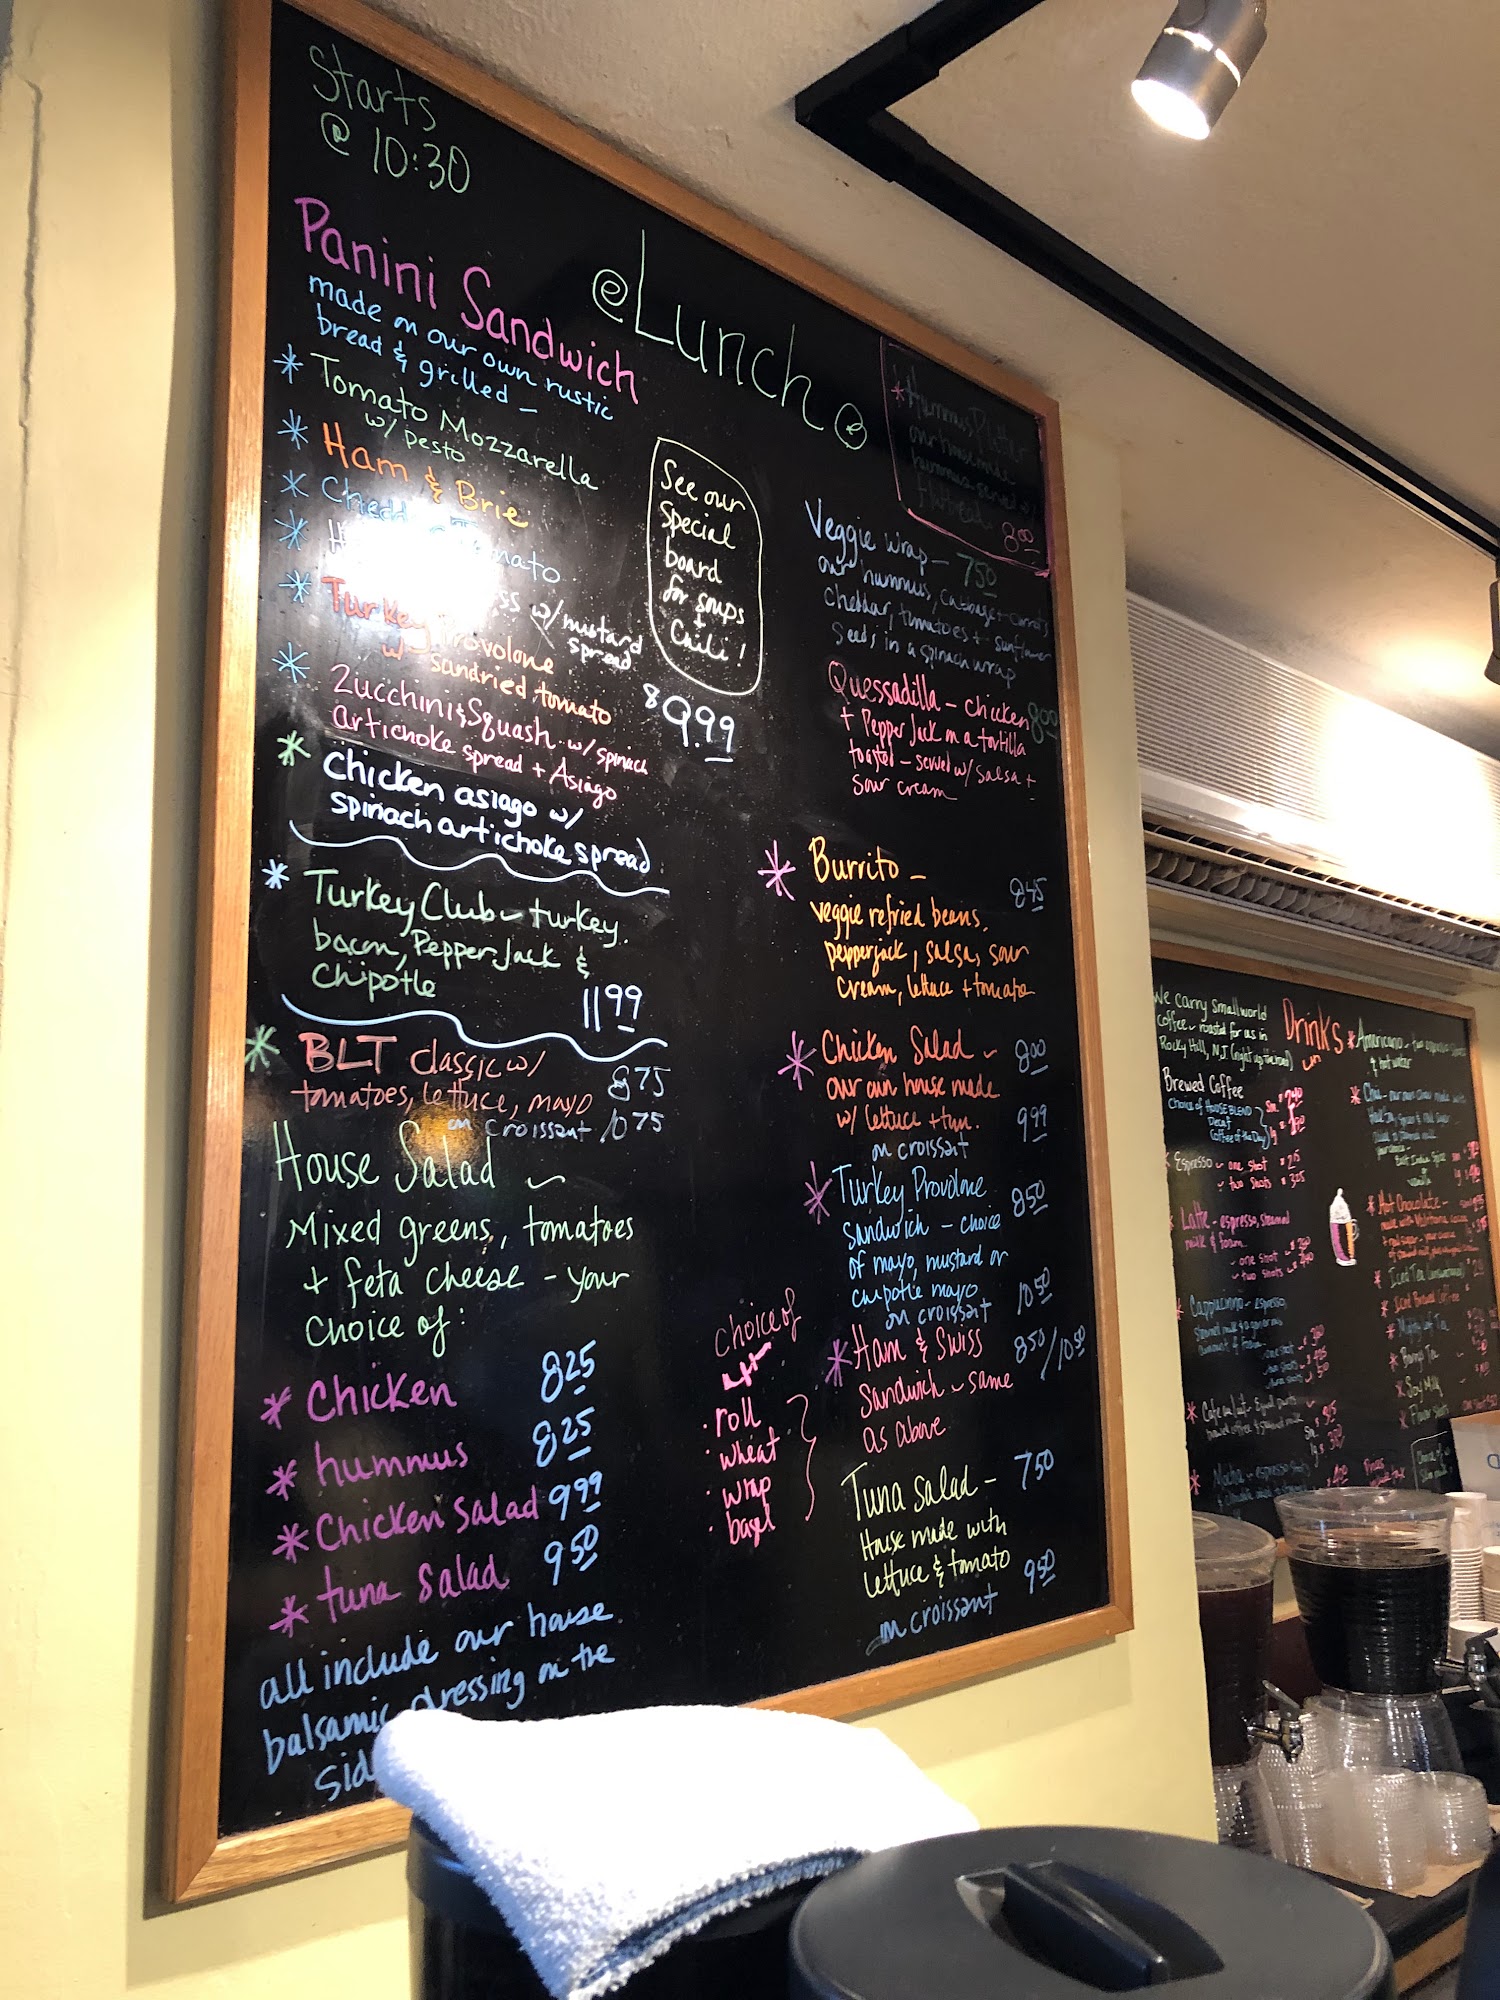 Starts
@ 10:30
@Lunch@
Panini Sandwich
made on our own rustic
bread & grilled -
* Tomato Mozzarella
w/ pesto
* Ham & Brie
* Tomato
w/ mustard
spread
* Turkey Provolone
w/ sandried tomato
* Zucchini & Squash w/ spinach
artichoke spread + Asiago
9.99
* Chicken asiago w/
spinach artichoke spread
* Turkey Club ~ turkey,
bacon, Pepper Jack &
Chipotle
11 99
* BLT classic w/
tomatoes, lettuce, mayo 8 75
on croissant 10 75
House Salad ~
Mixed greens, tomatoes
+ feta cheese - your
choice of:
* Chicken 8 25
* hummus 8 25
* Chicken Salad 9 99
* tuna salad 9 50
all include our house
balsamic dressing on the
See our
Special
board
for soups
+
Chili!
* Hummus Platter
our house made
hummus served w/
8 00
Veggie wrap - 7 50
our hummus, cabbage + carrots
cheddar, tomatoes + sunflower
seeds in a spinach wrap
Quessadilla - chicken 8 00
+ Pepper Jack on a tortilla
toasted - served w/ salsa +
sour cream
* Burrito - 8 45
veggie refried beans,
pepperjack, salsa, sour
cream, lettuce + tomato
* Chicken Salad ~ 8 00
our own house made
w/ lettuce + tom. 9 99
on croissant
* Turkey Provolone 8 50
sandwich - choice
of mayo, mustard or
chipotle mayo
on croissant 10 50
* Ham & Swiss 8 50 / 10 50
Sandwich ~ same
as above
choice of
· roll
· wheat
· wrap
· bagel
Tuna Salad - 7 50
House made with
lettuce & tomato
on croissant 9 50
We carry smallworld
Coffee ~ roasted for us in
Rocky Hill, NJ (right up the road)
Drinks
Brewed Coffee
Choice of HOUSE BLEND
Decaf
Coffee of the Day
Espresso ~ one shot
~ two shots
* Latte - espresso, steamed
milk & foam
- one shot
- two shots
* Cappuccino - espresso
* Mocha - espresso
* Americano - two espresso shots
& hot water
* Hot Chocolate -
* Iced Tea
* Iced Brewed Coffee
* Soy Milk